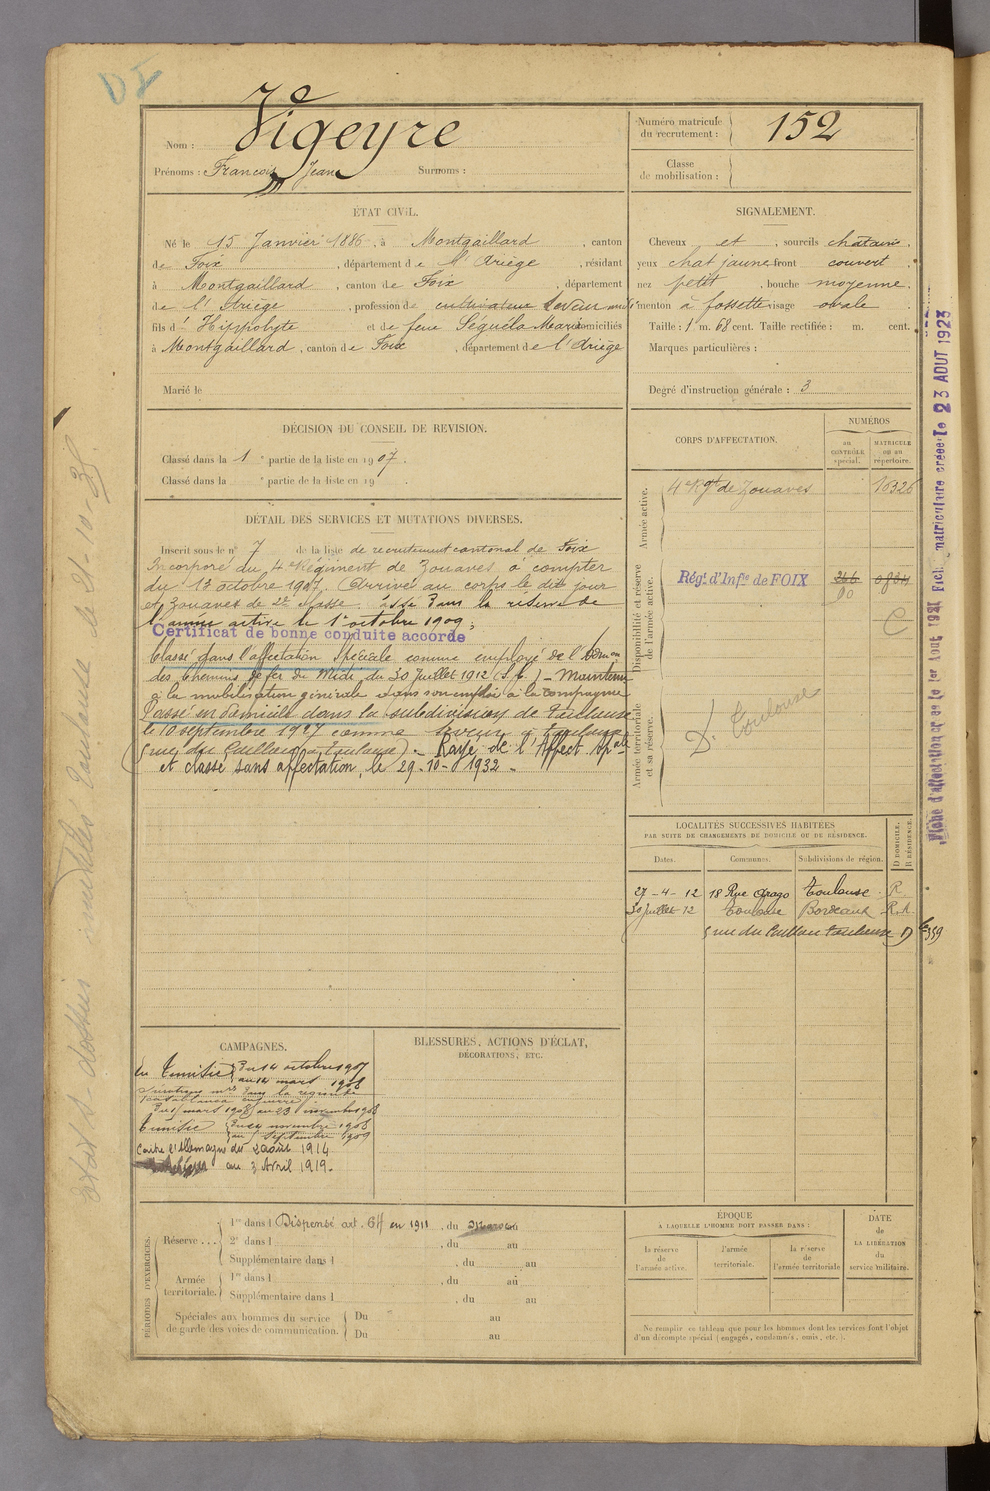 Nom : Vigeyre
Prénoms : François Jean Surnoms :
Numéro matricule du recrutement : 152
Classe de mobilisation :
ÉTAT CIVIL.
Né le 15 Janvier 1886, à Montgaillard, canton
de Foix, département de l'Ariège, résidant
à Montgaillard, canton de Foix, département
de l'Ariège, profession de cultivateur
fils d' Hippolyte et de feue Séguéla Marie domiciliés
à Montgaillard, canton de Foix, département de l'Ariège
Marié le
SIGNALEMENT.
Cheveux et, sourcils châtains.
yeux chat jaune front couvert
nez petit, bouche moyenne.
menton à fossette visage ovale
Taille : 1 m. 68 cent. Taille rectifiée : m. cent.
Marques particulières :
Degré d'instruction générale : 3
DÉCISION DU CONSEIL DE REVISION.
Classé dans la 1e partie de la liste en 1907.
Classé dans la e partie de la liste en 19
DÉTAIL DES SERVICES ET MUTATIONS DIVERSES.
Inscrit sous le n° 7 de la liste de recrutement cantonal de Foix
Incorporé du 4e Régiment de Zouaves à compter
du 13 octobre 1907. Arrivé au corps le dit jour
et Zouaves de 2e classe. Passé dans la réserve de
l'armée active le 1er octobre 1909,
Certificat de bonne conduite accordé
Classé dans l'affectation Spéciale comme employé de l'Admon
des Chemins de fer du Midi, du 30 Juillet 1912 (S.C.) - Maintenu
à la mobilisation générale dans son emploi à la Compagnie
Passé en domicile dans la subdivision de Toulouse
le 10 septembre 1927 comme à Toulouse
rue du Caillou à Toulouse). Rayé de l'Affect. Spale
et classé sans affectation, le 29-10-1932 -
CORPS D'AFFECTATION.
NUMÉROS
au CONTRÔLE spécial.
MATRICULE ou au répertoire.
Armée active.
4e Rgt de Zouaves 10326
Disponibilité et réserve de l'armée active.
Régt. d'Infie de FOIX
C
Armée territoriale et sa réserve.
D. Toulouse
LOCALITÉS SUCCESSIVES HABITÉES
PAR SUITE DE CHANGEMENTS DE DOMICILE OU DE RÉSIDENCE.
Dates. Communes. Subdivisions de région. D DOMICILE. R RÉSIDENCE.
27-4-12 18 Rue Arago Toulouse R
30 Juillet 12 Toulouse Bordeaux R.
rue du Caillou Toulouse D
CAMPAGNES.
En Tunisie du 14 octobre 1907
au 14 mars 1908
dans la région de
Casablanca en guerre
Du 15 mars 1908 au 23 novembre 1908
Tunisie du 24 novembre 1908
au septembre 1909
Contre l'Allemagne du 2 août 1914
au 3 Avril 1919.
BLESSURES, ACTIONS D'ÉCLAT,
DÉCORATIONS, ETC.
PÉRIODES D'EXERCICES.
Réserve ... 1re dans l Dispensé art. 64 en 1911, du au
2e dans l , du au
Supplémentaire dans l , du au
Armée territoriale. 1re dans l , du au
Supplémentaire dans l , du au
Spéciales aux hommes du service de garde des voies de communication. Du au
Du au
ÉPOQUE
A LAQUELLE L'HOMME DOIT PASSER DANS :
la réserve de l'armée active.
l'armée territoriale.
la réserve de l'armée territoriale
DATE de LA LIBÉRATION du service militaire.
Ne remplir ce tableau que pour les hommes dont les services font l'objet
d'un décompte spécial (engagés, condamnés, omis, etc.).
Fiche matriculaire créée le 23 AOUT 1923